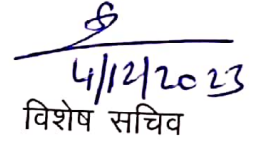 4/12/2023
विशेष सचिव